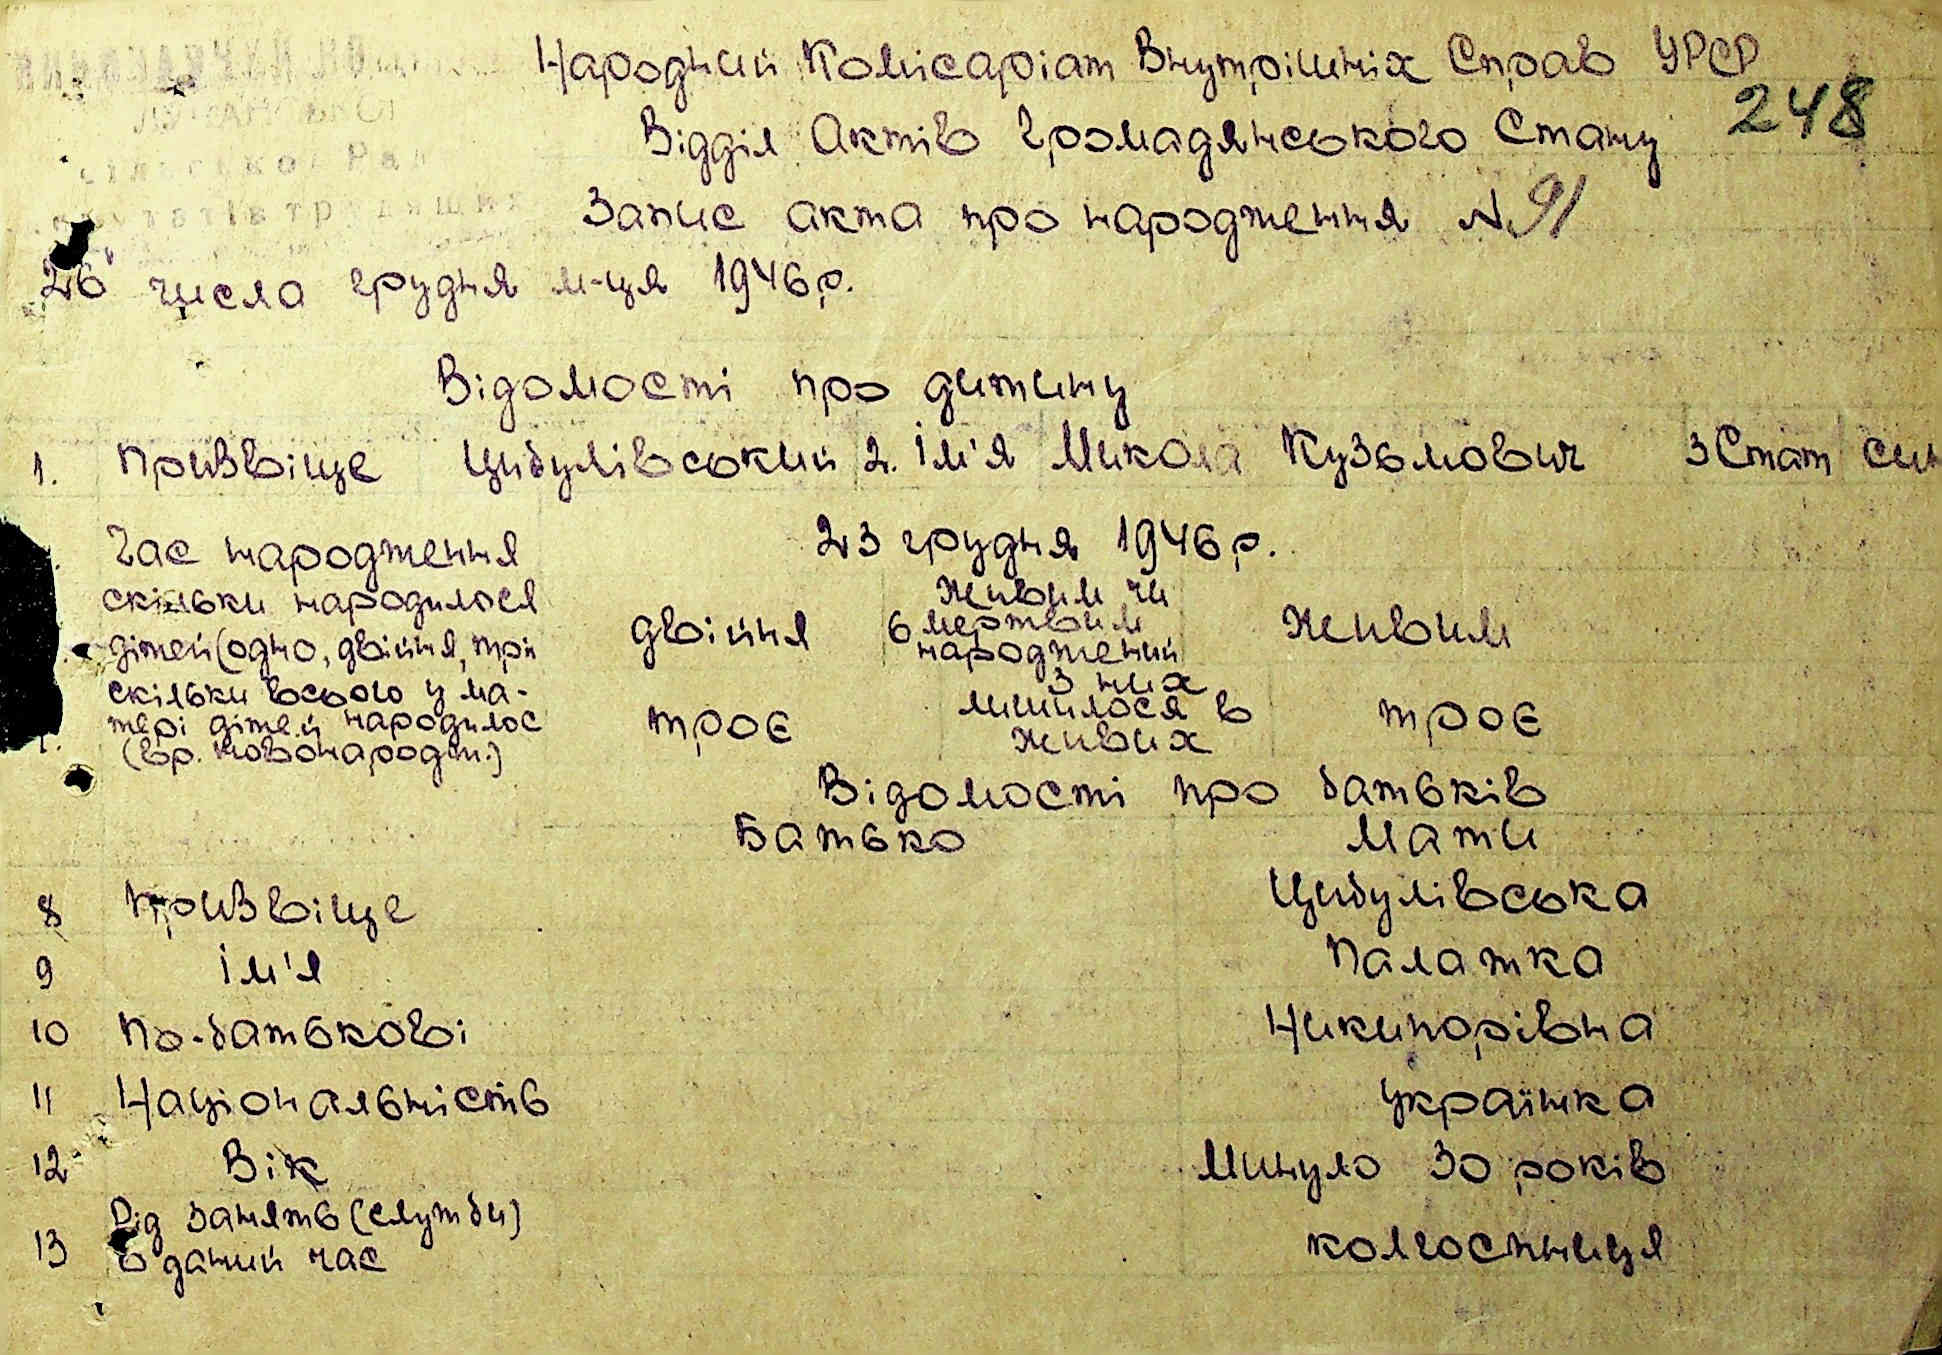 Народний Комісаріат Внутрішніх Справ УРСР
248
Відділ Актів Громадянського Стану
Запис акта про народження N 91
26 числа грудня м-ця 1946 р.
Відомості про дитину
1. Призвіще Цибулівський 2. Ім'я Микола Кузьмович 3 Стат син
Час народження 23 грудня 1946 р.
скільки народилося
дітей (одно, двійня, трій двійня 6 живим чи мертвим народжений живим
скільки всього у ма-
тері дітей народилос
(вр. новонародж.) троє з них лишилося в живих троє
Відомості про батьків
Батько Мати
8 Призвіще Цибулівська
9 Ім'я Палажка
10 По-батькові Никипорівна
11 Національність українка
12 Вік Минуло 30 років
13 Рід занять (служби)
в даний час колгоспниця